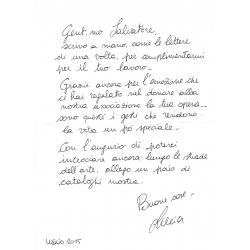 Gent.mo Salvatore,
scrivo a mano, come le lettere
di una volta, per complimentarmi
per il tuo lavoro.
Grazie ancora per l'emozione che
ci hai regalato nel donare alla
nostra associazione la tua opera..
sono questi i gesti che rendono
la vita un pó speciale.
Con l'augurio di poterci
incrociare ancora lungo le strade
dell'arte, allego un paio di
cataloghi mostra.
Buone cose.
2015